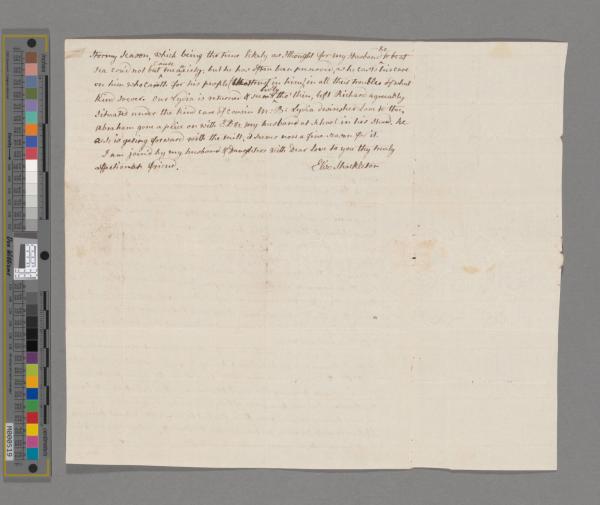 stormy season, which being the time likely as I thought for my Husband to be at
sea could not but cause me anxiety; but he has often been preserved, as he casts his care
on him who careth for his people, (trusting in him) in all their troubles of what
kind soever. Our Lydia is returned & hearty tho' thin, left Richard agreeably
situated under the kind care of cousin Lydia desires her Love to thee,
Abraham gone a piece on with my husband at School in his stead, he
is going forward with the mill, it seems now a fine season for it.
I am joined by my husband & Daughters with dear Love to you thy truly
affectionate friend.
Eliz: Shackleton
Inches
centimetres
M000519